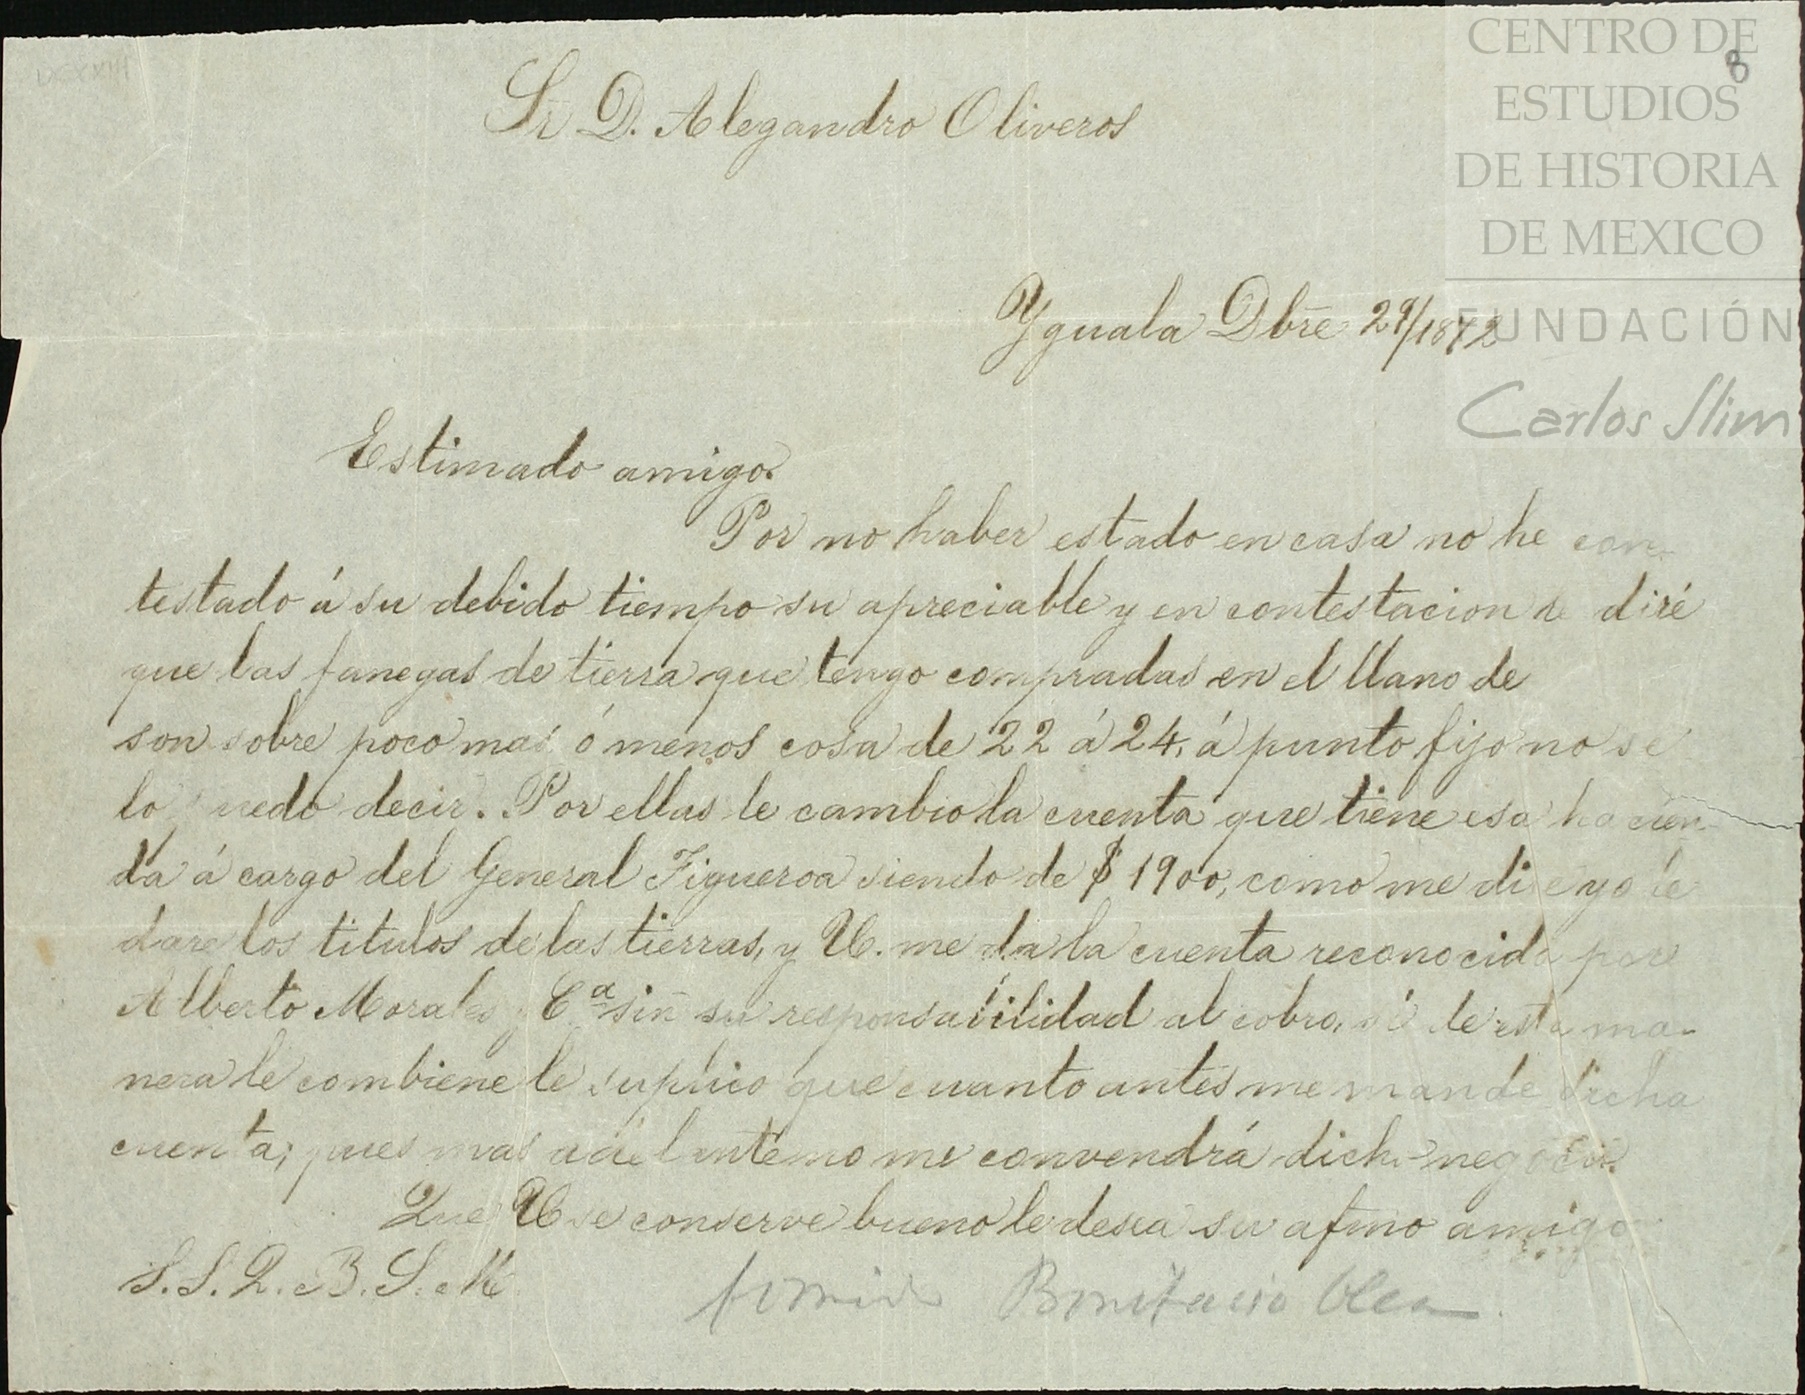 CENTRO DE
ESTUDIOS
DE HISTORIA
DE MEXICO
FUNDACIÓN
Carlos Slim
8
Sr D. Alegandro Oliveros
Yguala Dbre 29/1872
Estimado amigo.
Por no haber estado en casa no he con-
testado á su debido tiempo su apreciable y en contestacion le diré
que las fanegas de tierra que tengo compradas en el llano de
son sobre poco mas ó menos cosa de 22 á 24, á punto fijo no se
lo puedo decir. Por ellas le cambio la cuenta que tiene esa hacien-
da á cargo del General Figueroa siendo de $1900, como me dice yo le
dare los titulos de las tierras, y U. me da la cuenta reconocida por
Alberto Morales y Cª sin su responsabilidad al cobro, si de esta ma-
nera le combiene le suplico que cuanto antes me mande dicha
cuenta; pues mas adelante no me convendrá dicho negocio.
Que U se conserve bueno le desea su afmo amigo
S. S. Q. B. S. M.
Bonifacio Olea